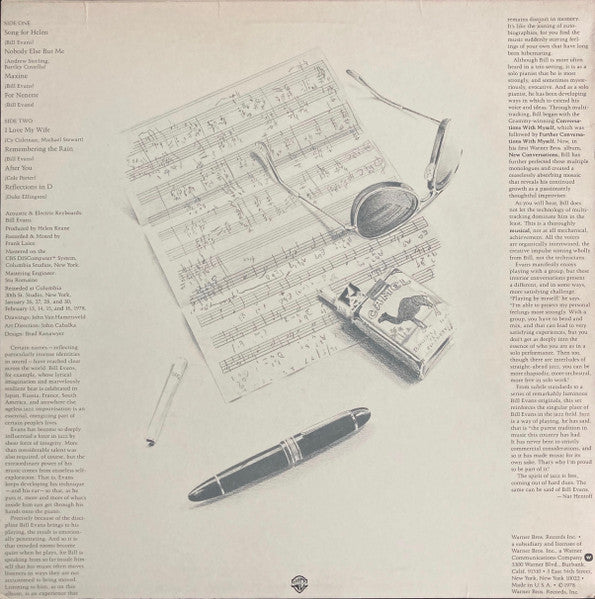 SIDE ONE
Song for Helen
(Bill Evans)
Nobody Else But Me
(Andrew Sterling,
Bartley Costello)
Maxine
(Bill Evans)
For Nenette
(Bill Evans)
SIDE TWO
I Love My Wife
(Cy Coleman, Michael Stewart)
Remembering the Rain
(Bill Evans)
After You
(Cole Porter)
Reflections in D
(Duke Ellington)
Acoustic & Electric Keyboards:
Bill Evans
Produced by Helen Keane
Recorded & Mixed by
Frank Laico
Mastered on the
CBS DISComputer™ System,
Columbia Studios, New York
Mastering Engineer:
Stu Romaine
Recorded at Columbia
30th St. Studio, New York,
January 26, 27, 28, and 30,
February 13, 14, 15, and 16, 1978.
Drawings: John Van Hamersveld
Art Direction: John Cabalka
Design: Brad Kanawyer
Certain names—reflecting
particularly intense identities
in sound—have reached clear
across the world. Bill Evans,
for example, whose lyrical
imagination and marvelously
resilient beat is celebrated in
Japan, Russia, France, South
America, and anywhere else
ageless jazz improvisation is an
essential, energizing part of
certain people's lives.
Evans has become so deeply
influential a force in jazz by
sheer force of integrity. More
than considerable talent was
also required, of course, but the
extraordinary power of his
music comes from ceaseless self-
exploration. That is, Evans
keeps developing his technique
—and his ear—so that, as he
puts it, more and more of what's
inside him can get through his
hands onto the piano.
Precisely because of the disci-
pline Bill Evans brings to his
playing, the music is emotion-
ally penetrating. And so it is
that crowded rooms become
quiet when he plays, for Bill is
speaking from so far inside him-
self that his music often moves
listeners in ways they are not
accustomed to being moved.
Listening to him, as on this
album, is an experience that
remains deep in memory.
It's like the joining of auto-
biographies, for you find the
music suddenly stirring feel-
ings of your own that have long
been hibernating.
Although Bill is most often
heard in a trio setting, it is as a
solo pianist that he is most
strongly, and sometimes myste-
riously, evocative. And as a solo
pianist, he has been developing
ways in which to extend his
voice and ideas. Through multi-
tracking, Bill began with the
Grammy-winning Conversa-
tions With Myself, which was
followed by Further Conversa-
tions With Myself. Now, in
his first Warner Bros. album,
New Conversations, Bill has
further perfected these multiple
monologues and created a
ceaselessly absorbing mosaic
that reveals his continued
growth as a passionately
thoughtful improviser.
As you will hear, Bill does
not let the technology of multi-
tracking dominate him in the
least. This is a thoroughly
musical, not at all mechanical,
achievement. All the voices
are organically intertwined, the
creative impulse coming wholly
from Bill, not the technicians.
Evans manifestly enjoys
playing with a group, but these
interior conversations present
a different, and in some ways,
more satisfying challenge.
"Playing by myself," he says,
"I'm able to project my personal
feelings more strongly. With a
group, you have to bend and
mix, and that can lead to very
satisfying experiences, but you
don't get as deeply into the
essence of who you are as in a
solo performance. Then too,
though there are interludes of
straight-ahead jazz, you can be
more rhapsodic, more orchestral,
more free in solo work."
From subtle standards to a
series of remarkably luminous
Bill Evans originals, this set
reinforces the singular place of
Bill Evans in the jazz field. Jazz
is a way of playing, he has said,
that is "the purest tradition in
music this country has had.
It has never bent to strictly
commercial considerations, and
so it has made music for its
own sake. That's why I'm proud
to be part of it."
The spirit of jazz is free,
coming out of hard dues. The
same can be said of Bill Evans.
—Nat Hentoff
Camel
Warner Bros. Records Inc. •
a subsidiary and licensee of
Warner Bros. Inc., a Warner
Communications Company
3300 Warner Blvd., Burbank,
Calif. 91510 • 3 East 54th Street,
New York, New York 10022 •
Made in U.S.A. • ©1978
Warner Bros. Records, Inc.